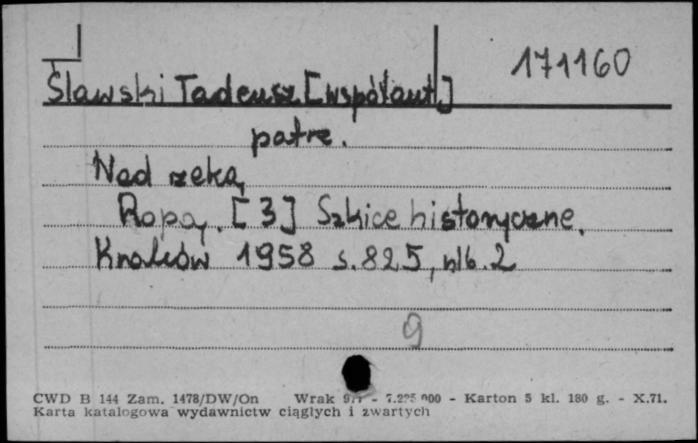 171160
Ślawski Tadeusz [współaut]
patrz.
Nad rzeką
Ropą. [3] Szkice historyczne.
Kraków 1958 s. 825, nlb. 2
9
CWD B 144 Zam. 1478/DW/On Wrak - 000 - Karton 5 kl. 180 g. - X.71.
Karta katalogowa wydawnictw ciągłych i zwartych